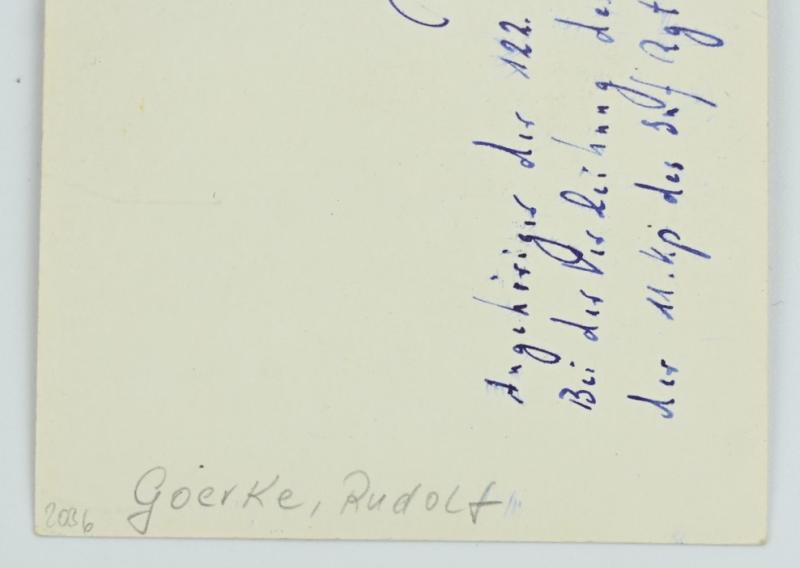 Angehöriger der 122.
Bei der Verleihung de
der 11.Kp des Inf Rgt
Goerke, Rudolf
2036